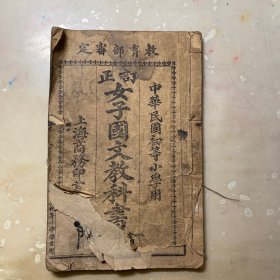 教育部審定
中華民國初等小學用
訂正
女子國文教科書
上海商務印